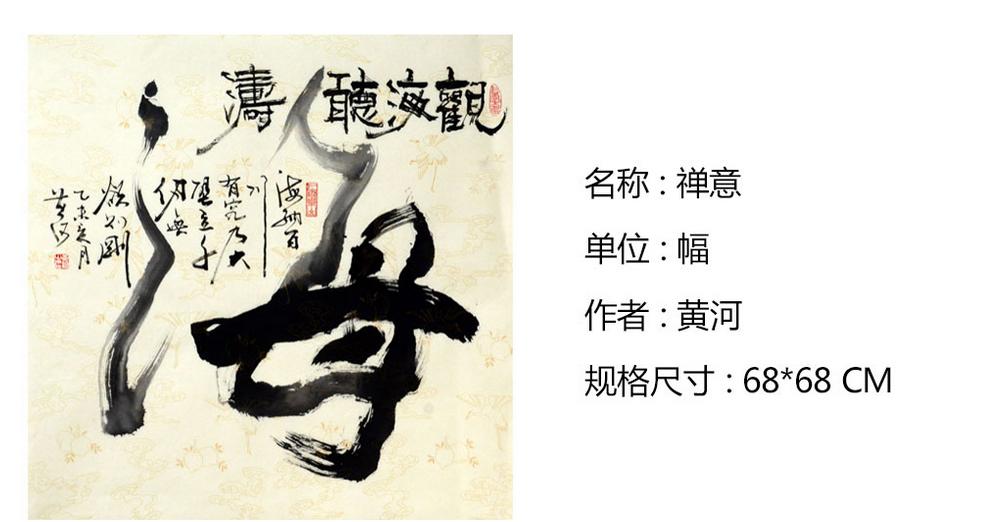 觀海聽濤
海
海納百
川
有容乃大
壁立千
仞無
欲則剛
乙未 月
黄河
名称 : 禅意
单位 : 幅
作者 : 黄河
规格尺寸 : 68*68 CM